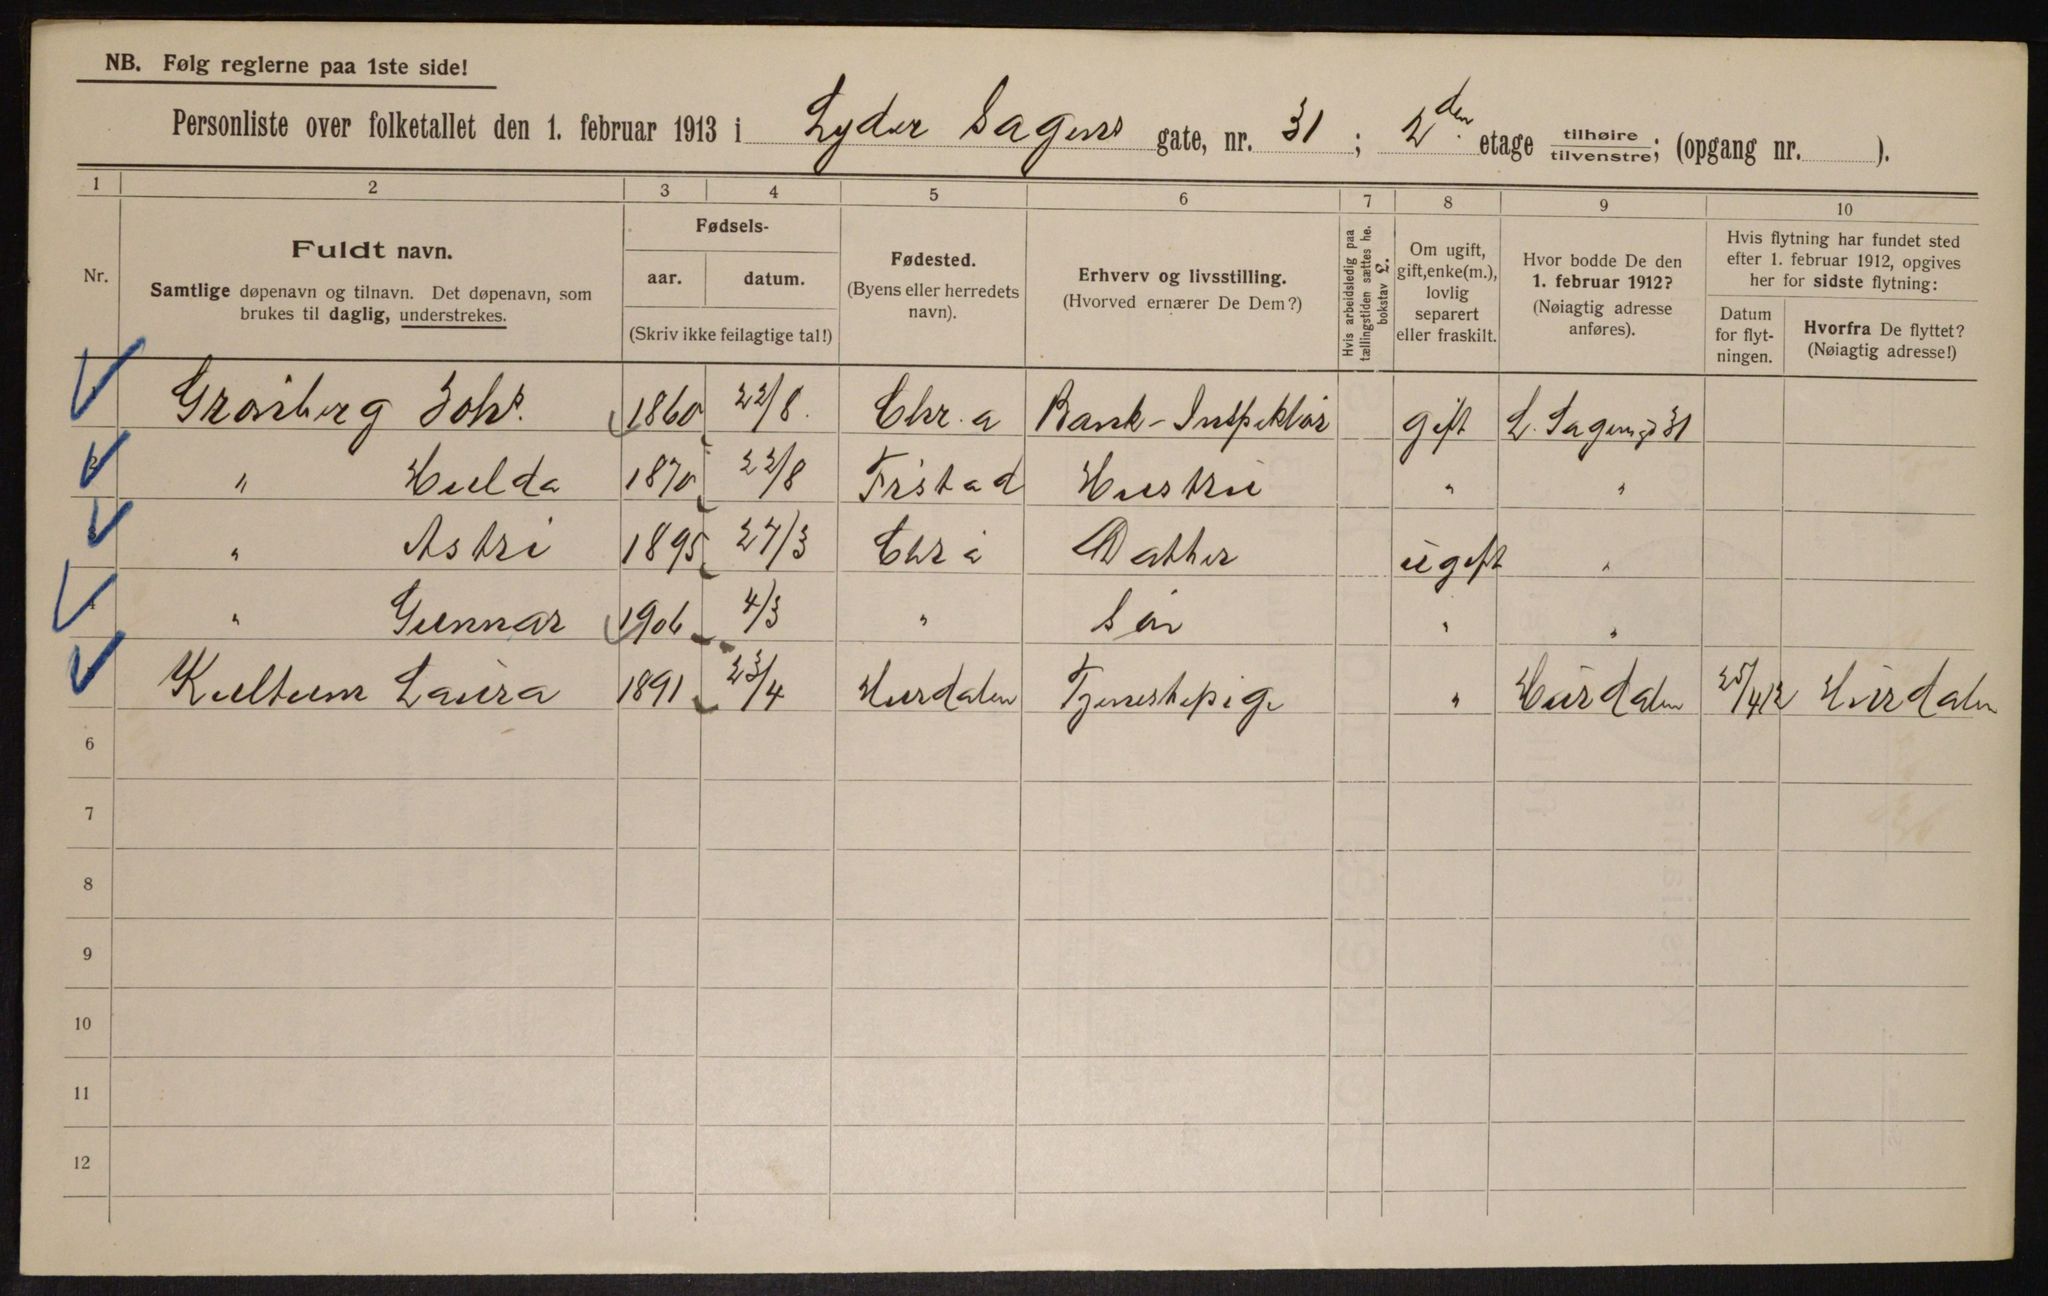 NB. Følg reglerne paa 1ste side!
Personliste over folketallet den 1. februar 1913 i Lyder Sagens gate, nr. 31; 2den etage tilhøire/tilvenstre; (opgang nr. ).
1 2 3 4 5 6 7 8 9 10
Nr.
Fuldt navn.
Samtlige døpenavn og tilnavn. Det døpenavn, som
brukes til daglig, understrekes.
Fødsels-
aar. datum.
(Skriv ikke feilagtige tal!)
Fødested.
(Byens eller herredets
navn).
Erhverv og livsstilling.
(Hvorved ernærer De Dem?)
Hvis arbeidsledig paa
tællingstiden sættes he.
bokstav £.
Om ugift,
gift, enke(m.),
lovlig
separert
eller fraskilt.
Hvor bodde De den
1. februar 1912?
(Nøiagtig adresse
anføres).
Hvis flytning har fundet sted
efter 1. februar 1912, opgives
her for sidste flytning:
Datum
for flyt-
ningen.
Hvorfra De flyttet?
(Nøiagtig adresse!)
1 Grønberg Johs. 1860 22/8. Chr.a Bank-Inspektør gift L. Sagensgt 31
2 " Hulda 1870 22/8 Hustru " "
3 " Astri 1895 27/3 Chra Datter ugift "
4 " Gunnar 1906 4/3 " Søn " "
Kultum Laura 1891 23/4 Hurdalen Tjenestepige " Hurdalen 25/4 12 Hurdalen
6
7
8
9
10
11
12